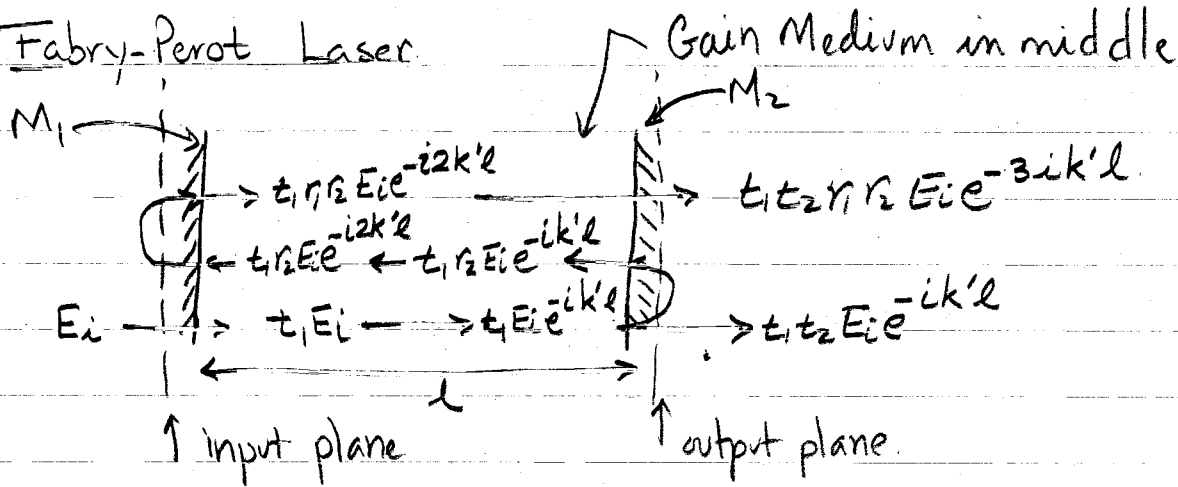 Fabry-Perot Laser
Gain Medium in middle
M₁
M₂
t₁r₁r₂Eᵢe^{-i2k'l}
t₁t₂r₁r₂Eᵢe^{-3ik'l}
t₁r₂Eᵢe^{-i2k'l} ← t₁r₂Eᵢe^{-ik'l}
Eᵢ → t₁Eᵢ → t₁Eᵢe^{-ik'l} → t₁t₂Eᵢe^{-ik'l}
l
↑ input plane
↑ output plane.